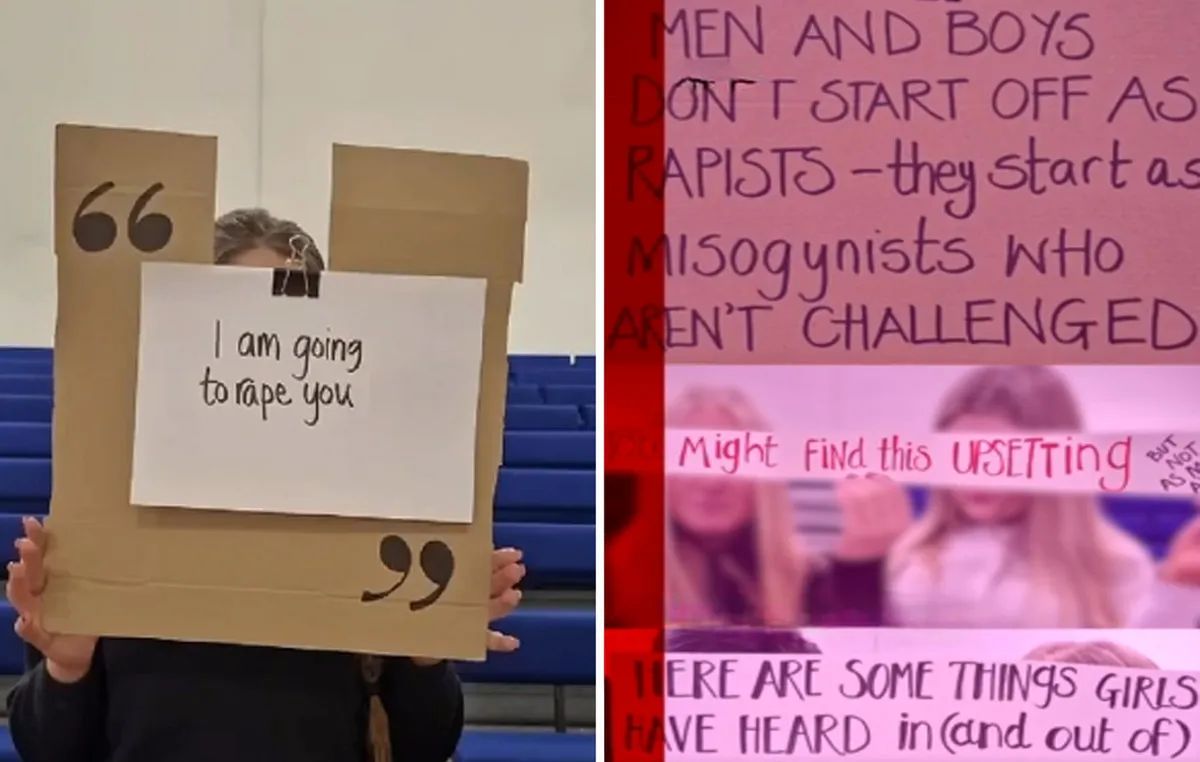 “
I am going
to rape you
”
MEN AND BOYS
DON'T START OFF AS
RAPISTS – they start as
MISogynists WHO
AREN'T CHALLENGED
Might FiNd this UPSETTing
BUT
AS NOT
THERE ARE SOME THINGS GIRLS
HAVE HEARD in (and out of)